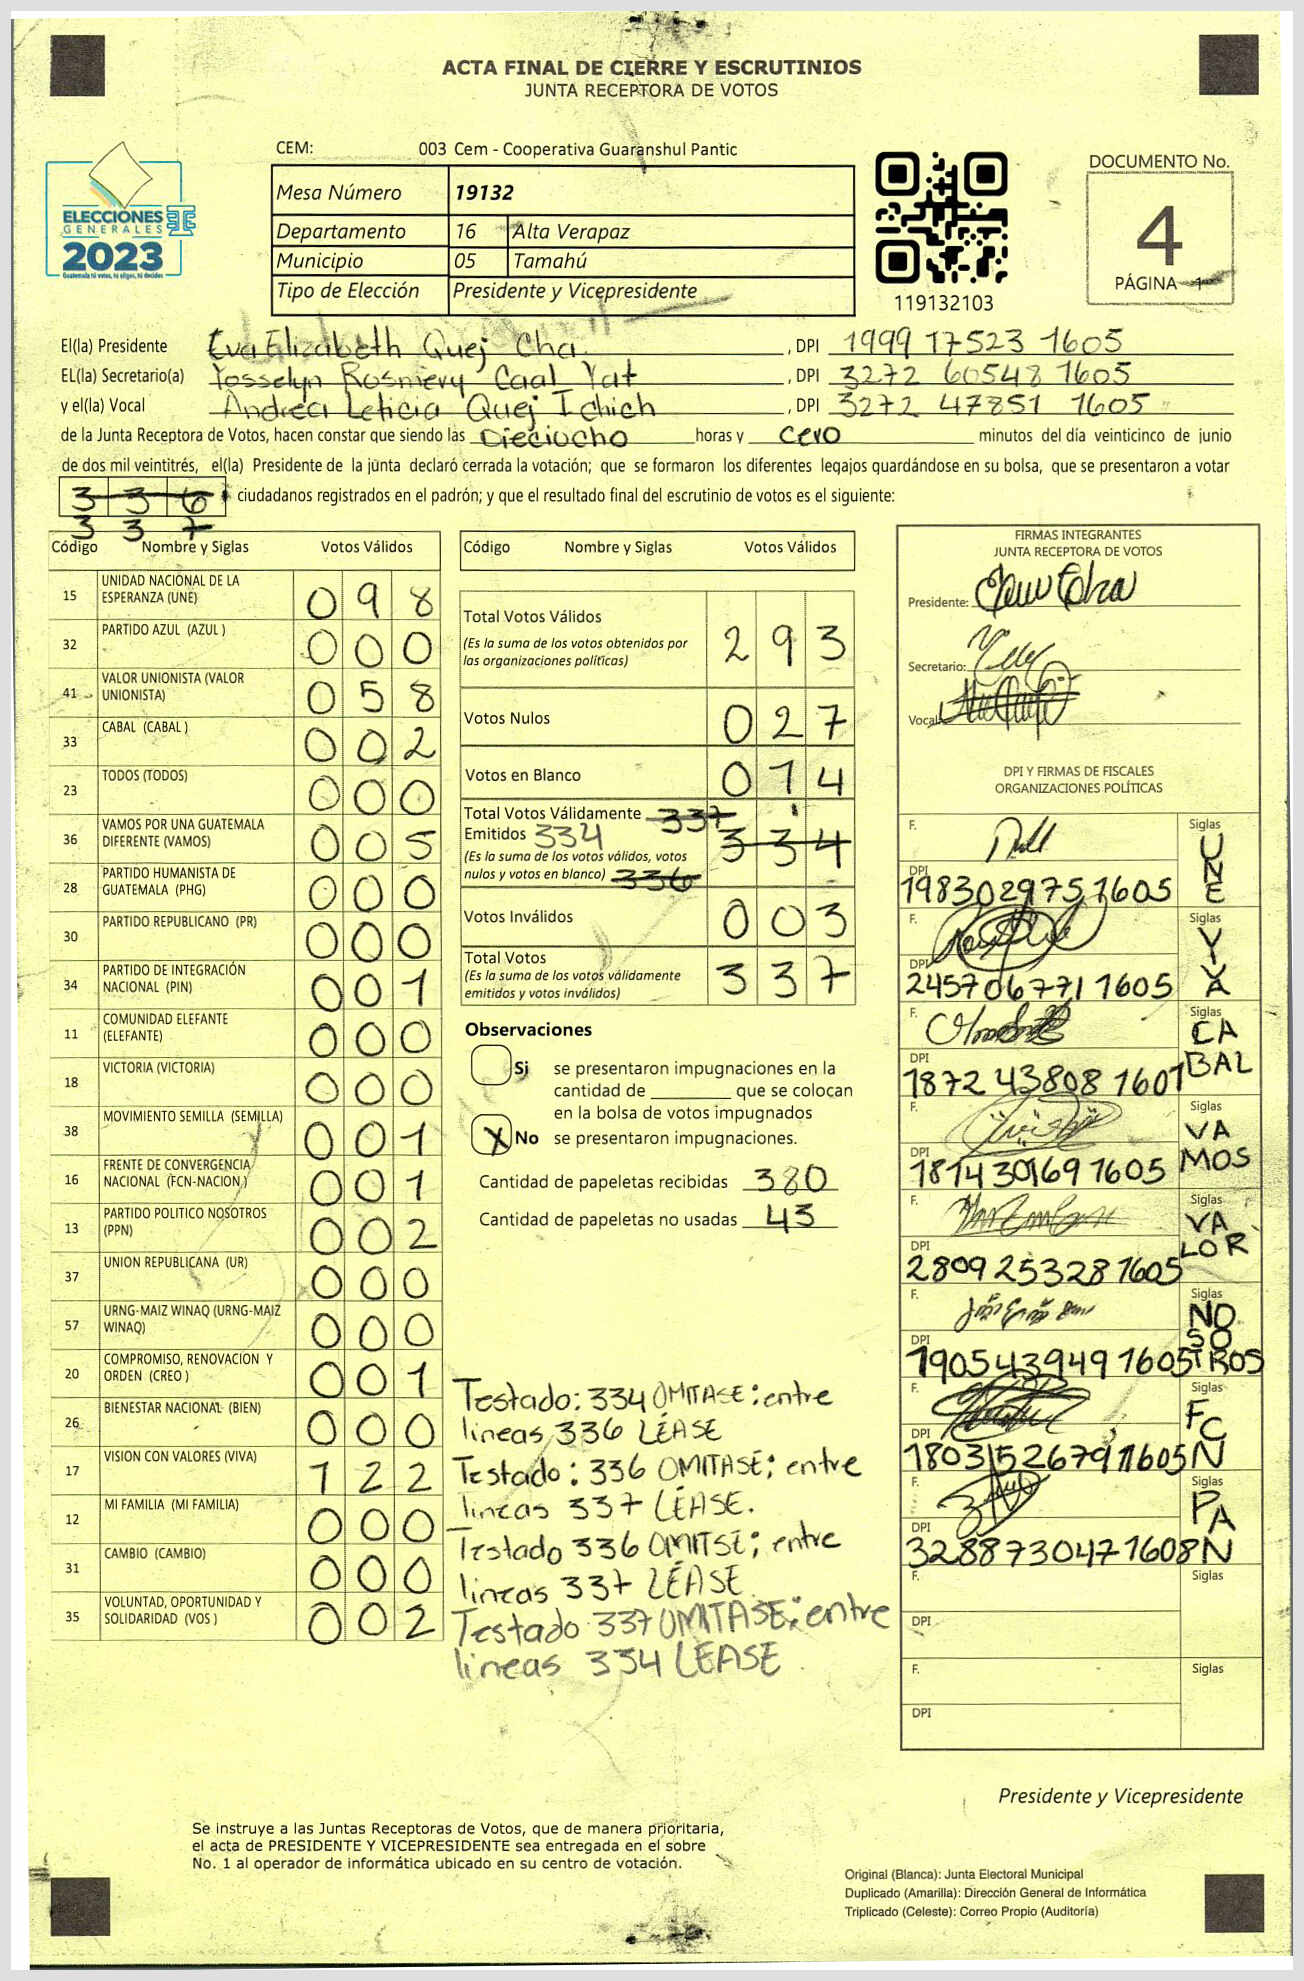 ACTA FINAL DE CIERRE Y ESCRUTINIOS
JUNTA RECEPTORA DE VOTOS
ELECCIONES
GENERALES
2023
Guatemala tú votas, tú eliges, tú decides
CEM: 003 Cem - Cooperativa Guaranshul Pantic
Mesa Número 19132
Departamento 16 Alta Verapaz
Municipio 05 Tamahú
Tipo de Elección Presidente y Vicepresidente
119132103
DOCUMENTO No.
4
PÁGINA 1
El(la) Presidente Eva Elizabeth Quej Cha , DPI 1999 17523 1605
EL(la) Secretario(a) Yosselyn Rosmery Caal Yat , DPI 3272 60548 1605
y el(la) Vocal Andrea Leticia Quej Ichich , DPI 3272 47851 1605
de la Junta Receptora de Votos, hacen constar que siendo las Dieciocho horas y cero minutos del día veinticinco de junio
de dos mil veintitrés, el(la) Presidente de la junta declaró cerrada la votación; que se formaron los diferentes legajos guardándose en su bolsa, que se presentaron a votar
336 ciudadanos registrados en el padrón; y que el resultado final del escrutinio de votos es el siguiente:
337
Código Nombre y Siglas Votos Válidos
15 UNIDAD NACIONAL DE LA ESPERANZA (UNE) 098
32 PARTIDO AZUL (AZUL ) 000
41 VALOR UNIONISTA (VALOR UNIONISTA) 058
33 CABAL (CABAL ) 002
23 TODOS (TODOS) 000
36 VAMOS POR UNA GUATEMALA DIFERENTE (VAMOS) 005
28 PARTIDO HUMANISTA DE GUATEMALA (PHG) 000
30 PARTIDO REPUBLICANO (PR) 000
34 PARTIDO DE INTEGRACIÓN NACIONAL (PIN) 001
11 COMUNIDAD ELEFANTE (ELEFANTE) 000
18 VICTORIA (VICTORIA) 000
38 MOVIMIENTO SEMILLA (SEMILLA) 001
16 FRENTE DE CONVERGENCIA NACIONAL (FCN-NACION ) 001
13 PARTIDO POLITICO NOSOTROS (PPN) 002
37 UNION REPUBLICANA (UR) 000
57 URNG-MAIZ WINAQ (URNG-MAIZ WINAQ) 000
20 COMPROMISO, RENOVACION Y ORDEN (CREO ) 001
26 BIENESTAR NACIONAL (BIEN) 000
17 VISION CON VALORES (VIVA) 122
12 MI FAMILIA (MI FAMILIA) 000
31 CAMBIO (CAMBIO) 000
35 VOLUNTAD, OPORTUNIDAD Y SOLIDARIDAD (VOS ) 002
Código Nombre y Siglas Votos Válidos
Total Votos Válidos 293
(Es la suma de los votos obtenidos por
las organizaciones políticas)
Votos Nulos 027
Votos en Blanco 014
Total Votos Válidamente 337
Emitidos 334 334
(Es la suma de los votos válidos, votos
nulos y votos en blanco) 336
Votos Inválidos 003
Total Votos 337
(Es la suma de los votos válidamente
emitidos y votos inválidos)
Observaciones
Si se presentaron impugnaciones en la
cantidad de ________ que se colocan
en la bolsa de votos impugnados
X No se presentaron impugnaciones.
Cantidad de papeletas recibidas 380
Cantidad de papeletas no usadas 43
Testado: 334 OMITASE: entre
lineas 336 LÉASE
Testado: 336 OMITASE; entre
lineas 337 LÉASE.
Testado 336 OMITSE; entre
lineas 337 LÉASE
Testado 337 OMITASE: entre
lineas 334 LEASE
FIRMAS INTEGRANTES
JUNTA RECEPTORA DE VOTOS
Presidente:
Secretario:
Vocal
DPI Y FIRMAS DE FISCALES
ORGANIZACIONES POLÍTICAS
F. Siglas UNE
DPI 1983029751605
F. Siglas VIVA
DPI 2457067711605
F. Siglas CABAL
DPI 1872 43808 1601
F. Siglas VAMOS
DPI 1814301691605
F. Siglas VALOR
DPI 2809253281605
F. Siglas NOSOTROS
DPI 1905439491605
F. Siglas FCN
DPI 1803152679 1605
F. Siglas PAN
DPI 3288730471608
F. Siglas
DPI
F. Siglas
DPI
Presidente y Vicepresidente
Se instruye a las Juntas Receptoras de Votos, que de manera prioritaria,
el acta de PRESIDENTE Y VICEPRESIDENTE sea entregada en el sobre
No. 1 al operador de informática ubicado en su centro de votación.
Original (Blanca): Junta Electoral Municipal
Duplicado (Amarilla): Dirección General de Informática
Triplicado (Celeste): Correo Propio (Auditoría)